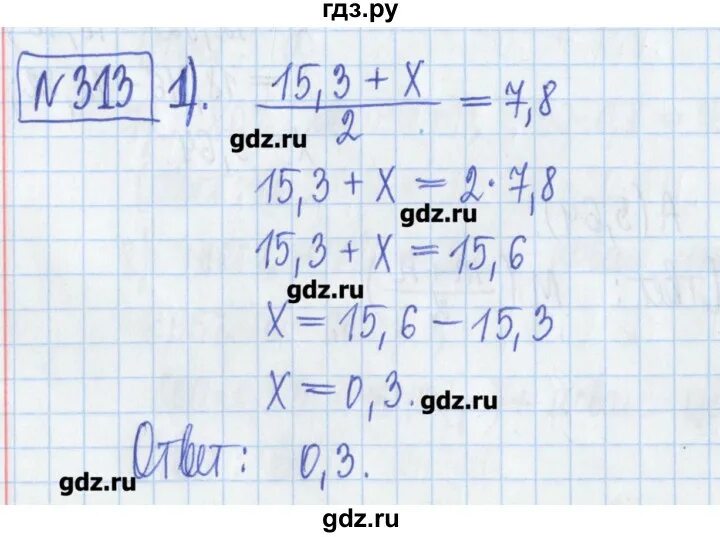 гдз.ру
№313 1). (15,3 + X)/2 = 7,8
gdz.ru
15,3 + X = 2 · 7,8
gdz.ru
15,3 + X = 15,6
gdz.ru
X = 15,6 − 15,3
X = 0,3.
gdz.ru
Ответ: 0,3.
gdz.ru
gdz.ru